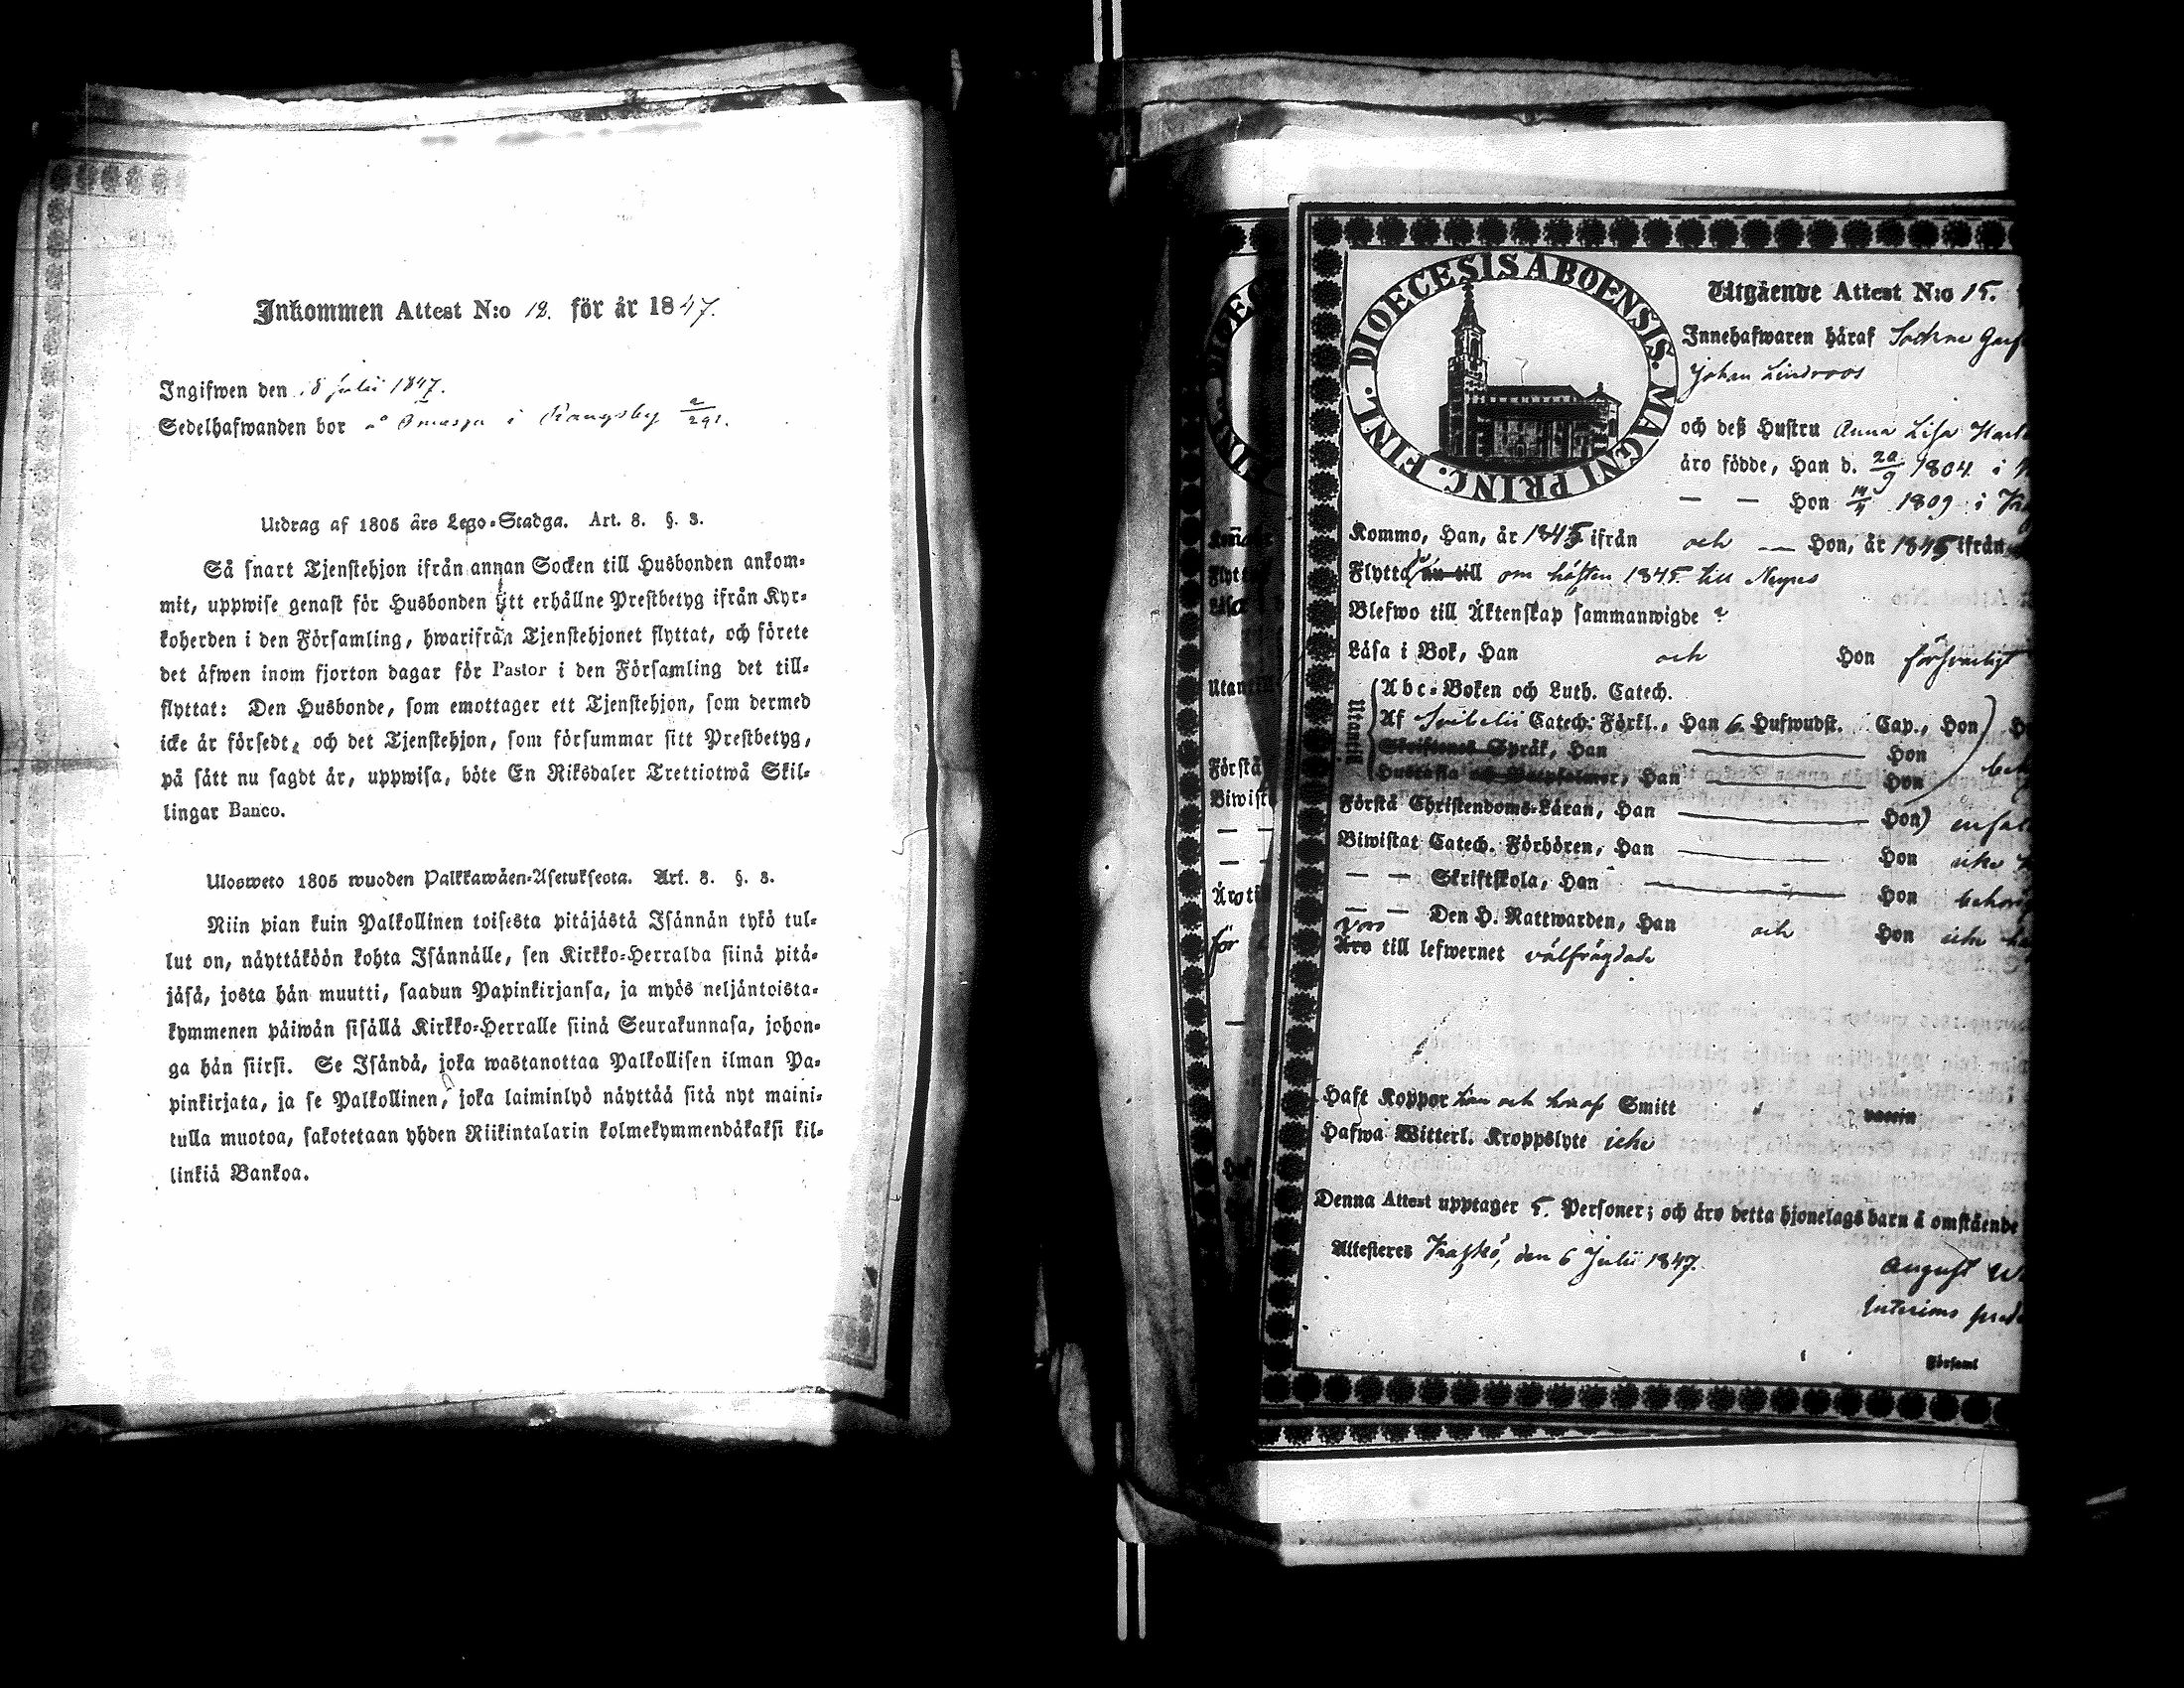 Inkommen Attest N:o 12. för år 1847.
Ingifwen den 18 Julii 1847.
Sedelhafwanden bor å i 2/291.
Utdrag af 1805 års Lego-Stadga. Art. 8. §. 3.
Så snart Tjenstehjon ifrån annan Socken till Husbonden ankom-
mit, uppwise genast för Husbonden sitt erhållne Prestbetyg ifrån Kyr-
koherden i den Församling, hwarifrån Tjenstehjonet flyttat, och förete
det äfwen inom fjorton dagar för Pastor i den Församling det till-
flyttat: Den Husbonde, som emottager ett Tjenstehjon, som dermed
icke är försedt, och det Tjenstehjon, som försummar sitt Prestbetyg,
på sätt nu sagdt är, uppwisa, böte En Riksdaler Trettiotwå Skil-
lingar Banco.
Ulosweto 1805 wuoden Palkkawäen-Asetuksesta. Art. 8. §. 3.
Niin pian kuin Palkollinen toisesta pitäjästä Isännän tykö tul-
lut on, näyttäköön kohta Isännälle, sen Kirkko-Herralda siinä pitä-
jäsä, josta hän muutti, saadun Papinkirjansa, ja myös neljäntoista-
kymmenen päiwän sisällä Kirkko-Herralle siinä Seurakunnasa, johon-
ga hän siirsi. Se Isändä, joka wastanottaa Palkollisen ilman Pa-
pinkirjata, ja se Palkollinen, joka laiminlyö näyttää sitä nyt maini-
tulla muotoa, sakotetaan yhden Riikintalarin kolmekymmendäkaksi kil-
linkiä Bankoa.
DIOECESIS ABOENSIS. MAGNI PRINC. FINL.
Utgående Attest N:o 15.
Innehafwaren häraf
Johan Lindroos
och deß Hustru Anna Lisa
äro födde, Han d. 20/9 1804 i
— — Hon 14/4 1809 i
Kommo, Han, år 1845 ifrån och — Hon, år 1845 ifrån
Flytta nu till om hösten 1845 till Nerpes
Blefwo till Äktenskap sammanwigde ?
Läsa i Bok, Han och Hon försvarligt
Utantill
Abc-Boken och Luth. Catech.
Af Svebelii Catech. Förkl., Han 6 Hufwudst. Cap., Hon
Skriftenes Språk, Han Hon
Hustafla och Botpsalmer, Han Hon
Förstå Christendoms-Läran, Han Hon
Biwistat Catech. Förhören, Han Hon icke
— — Skriftskola, Han Hon
— — Den H. Nattwarden, Han och Hon icke
voro
Äro till lefwernet välfrägdade
Haft Koppor han och hon af Smitt vaccin
Hafwa Witterl. Kroppslyte icke
Denna Attest upptager 5. Personer; och äro detta hjonelags barn å omstående
Attesteres Kaskö, den 6 Julii 1847.
August
Interims
Församl